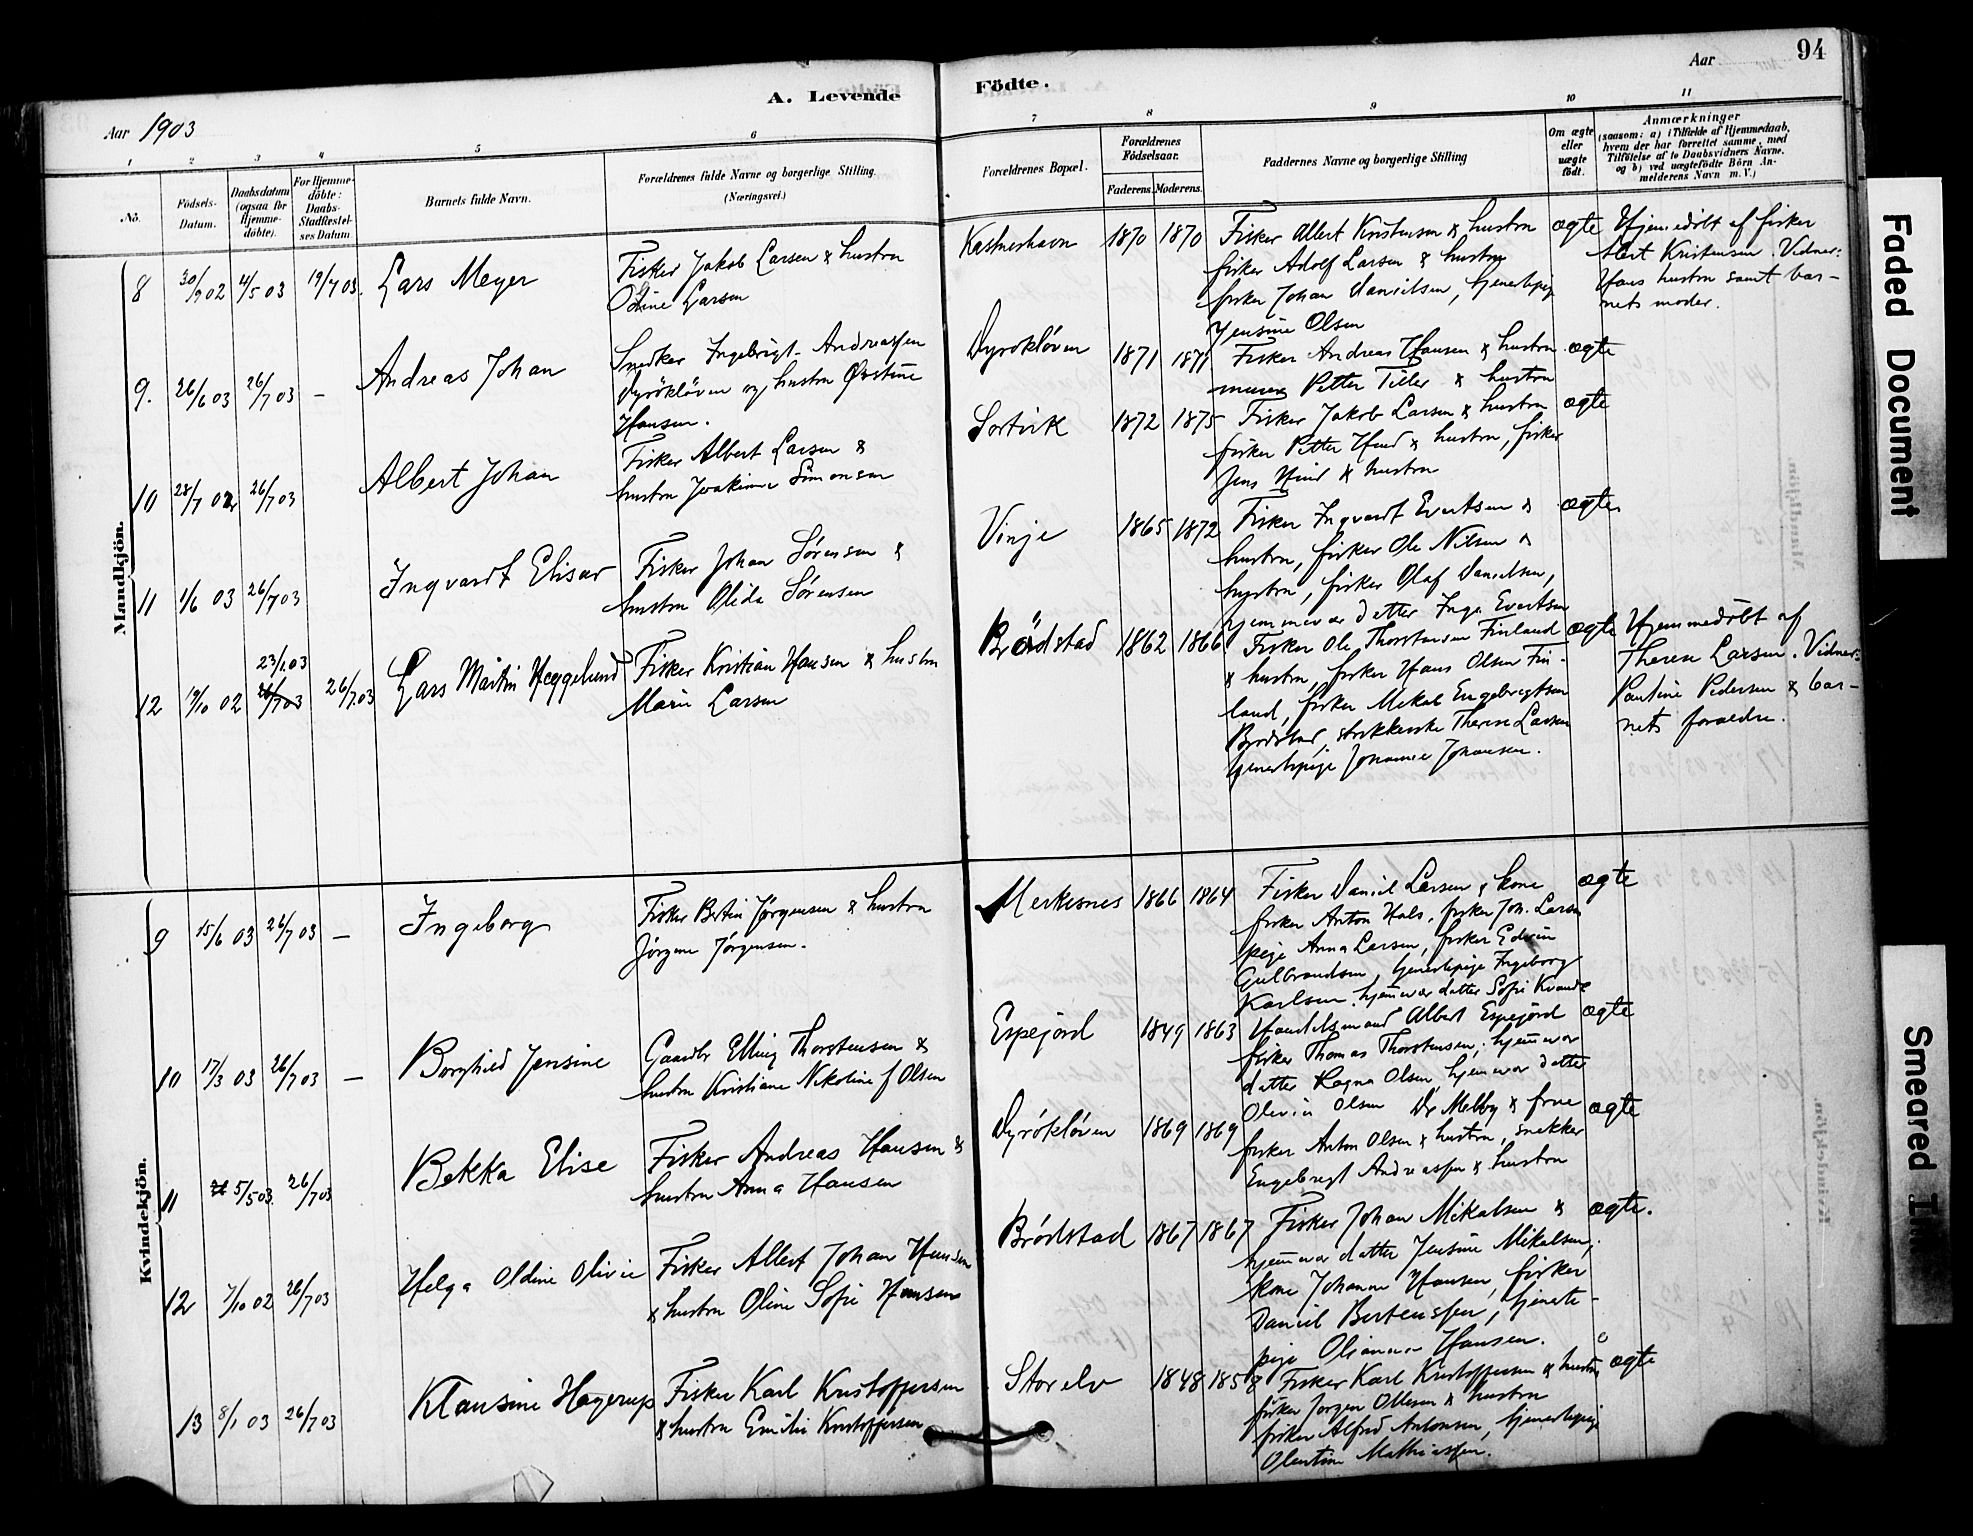 94
Aar
A. Levende
Födte.
Aar 1903
1 2 3 4 5 6 7 8 9 10 11
No.
Födsels-Datum.
Daabsdatum (ogsaa for Hjemme-döbte).
For Hjemme-döbte: Daabs-Stadfæstel-ses Datum
Barnets fulde Navn.
Forældrenes fulde Navne og borgerlige Stilling. (Næringsvei.)
Forældrenes Bopæl.
Forældrenes Födselsaar.
Faderens. Moderens.
Faddernes Navne og borgerlige Stilling
Om ægte eller uægte födt.
Anmærkninger
(saasom: a) i Tilfælde af Hjemmedaab,
hvem der har forrettet samme, med
Tilföielse af to Daabsvidners Navne,
og b) ved uægtefödte Börn An-
melderens Navn m. V.)
Mandkjön.
8 30/9 02 4/5 03 19/7 03. Lars Meyer
Fisker Jakob Larsen & hustru
Odine Larsen
Kastneshavn 1870 1870
Fisker Albert Kristensen & hustru
fisker Adolf Larsen & hustru
fisker Johan Danielsen, tjenestepig
Jensine Olsen
ægte
Hjemmedöbt af fisker
Albert Kristensen. Vidner:
Hans hustru samt bar-
nets moder.
9. 26/6 03 26/7 03 — Andreas Johan
Snedker Ingebrigt Andreassen
Dyrökløven og hustru Øvstine
Hansen.
Dyrokløven 1871 1871
Fisker Andreas Hansen & hustru
murer Petter Tiller & hustru
ægte
10 28/7 02 26/7 03 Albert Johan
Fisker Albert Larsen &
hustru Joakime Simonsen
Sortvik 1872 1875
Fisker Jakob Larsen & hustru
fisker Petter Hind & hustru, fisker
Jens Hind & hustru
ægte
11 1/6 03 26/7 03 Ingvardt Elisar
Fisker Johan Sørensen &
hustru Olida Sørensen
Vinje 1865 1872
Fisker Ingvardt Evertsen &
hustru, fisker Ole Nilsen &
hustru, fisker Olaf Danielsen,
hjemmevær datter Inga Evertsen
ægte
12 19/10 02 23/1 03 26/7 03 26/7.03 Lars Martin Heggelund
Fisker Kristian Hansen & hustru
Marie Larsen
Brödstad 1862 1866
Fisker Ole Thorstensen Finland
& hustru, fisker Hans Olsen Fin-
land, fisker Mikal Engebrigtsen
Brödstad, strikkerske Therese Larsen
tjenestepige Johanna Johansen.
ægte
Hjemmedöbt af
Therese Larsen. Vidner:
Pauline Pedersen & bar-
nets forældre.
Kvindekjön.
9 15/6 03 26/7 03 — Ingeborg
Fisker Bertin Jørgensen & hustru
Jørgine Jørgensen.
Merkesnes 1866 1864
Fisker Daniel Larsen & kone
fisker Anton Hals, fisker Joh. Larsen
pige Anna Larsen, fisker Edvin
Gulbrandsen, tjenestepige Ingeborg
Karlsen, hjemvær datter Sofie Kvande
ægte
10 17/3 03 26/7 03 — Borghild Jensine
Gaardbr Elling Thorstensen &
hustru Kristiane Nikoline f Olsen
Espejord 1849 1863
Handelsmand Albert Espejord
fisker Thomas Thorstensen, hjemvær
datter Ragna Olsen, hjemvær datter
Olivia Olsen
ægte
11 5/5 03 26/7 03 Bekka Elise
Fisker Andreas Hansen &
hustru Anna Hansen
Dyrökløven 1869 1869
Dr Melby & frue
fisker Anton Olsen & hustru, snekker
Engebrigt Andreassen & hustru
ægte
12 7/10 02 26/7 03 Helga Oldine Olivie
Fisker Albert Johan Hansen
& hustru Oline Sofie Hansen
Brödstad 1867 1867
Fisker Johan Mikalsen &
hjemvær datter Jensine Mikalsen,
kone Johanna Hansen, fisker
Daniel Bertensen, tjeneste-
pige Olianna Hansen.
ægte.
13 8/1 03 26/7 03 Klausine Hagerup
Fisker Karl Kristoffersen
& hustru Emilie Kristoffersen
Storelv 1848 1858
Fisker Karl Kristoffersen & hustru
fisker Jorgen Ollesen & hustru
fisker Alfred Antonsen, tjenestepige
Olentine Mathiassen.
ægte
Faded Document
Smeared